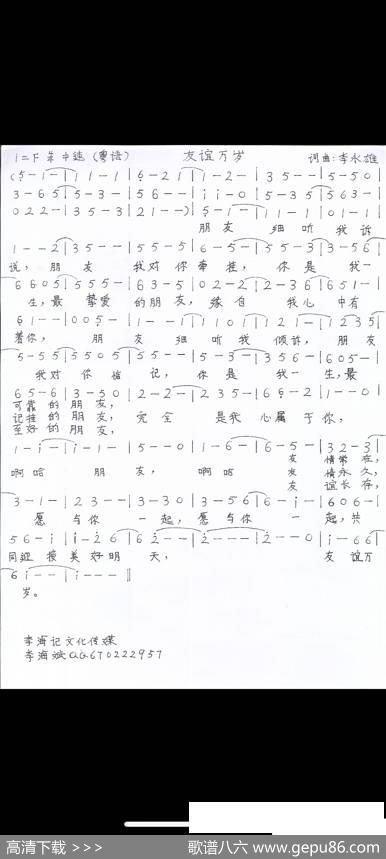 1=F 中速（粤语） 友谊万岁 词曲:李永雄
(5-1-|11-1|6-21|1-2-|35--|5-50|
3-65|5-3-|56--|i i-0|5-35|563-|
022-|35-3|21--)|5-1-|11-1|01-1|
朋友 细听我诉
1--2|35--|55-5|6-5-|55-3|3-56|
说，朋友 我对你牵挂，你是我一
6605|555-|63-5|02-2|2-36|651-|
生，最挚爱的朋友，缘自我心中有
61--|005-|1--1|1101|121-|1235|
着你， 朋友细听我倾诉，朋友
5-55|5505|5-5-|5-3-|356-|605-|
我对你惦记，你是我一生，最
65-6|3-50|2--2|235-|66-2|1--0|
可靠的朋友，
记挂的朋友，完全是我心属于你，
至好的朋友，
1-i-|i-1-|5--0|1-6-|6-5-|32-3|
啊哈朋友，啊哈友情常在，
友情永久，
友谊长存，
3-1-|23--|3-30|3-56|6-i-|606-|
愿与你一起，愿与你一起，共
56-i|i-26|62--|2---|2--0|i-66|
同迎接美好明天， 友谊万
6i--|i---‖
岁。
李海记文化传媒
李海斌QQ670222957
高清下载 >>> 歌谱八六 www.gepu86.com